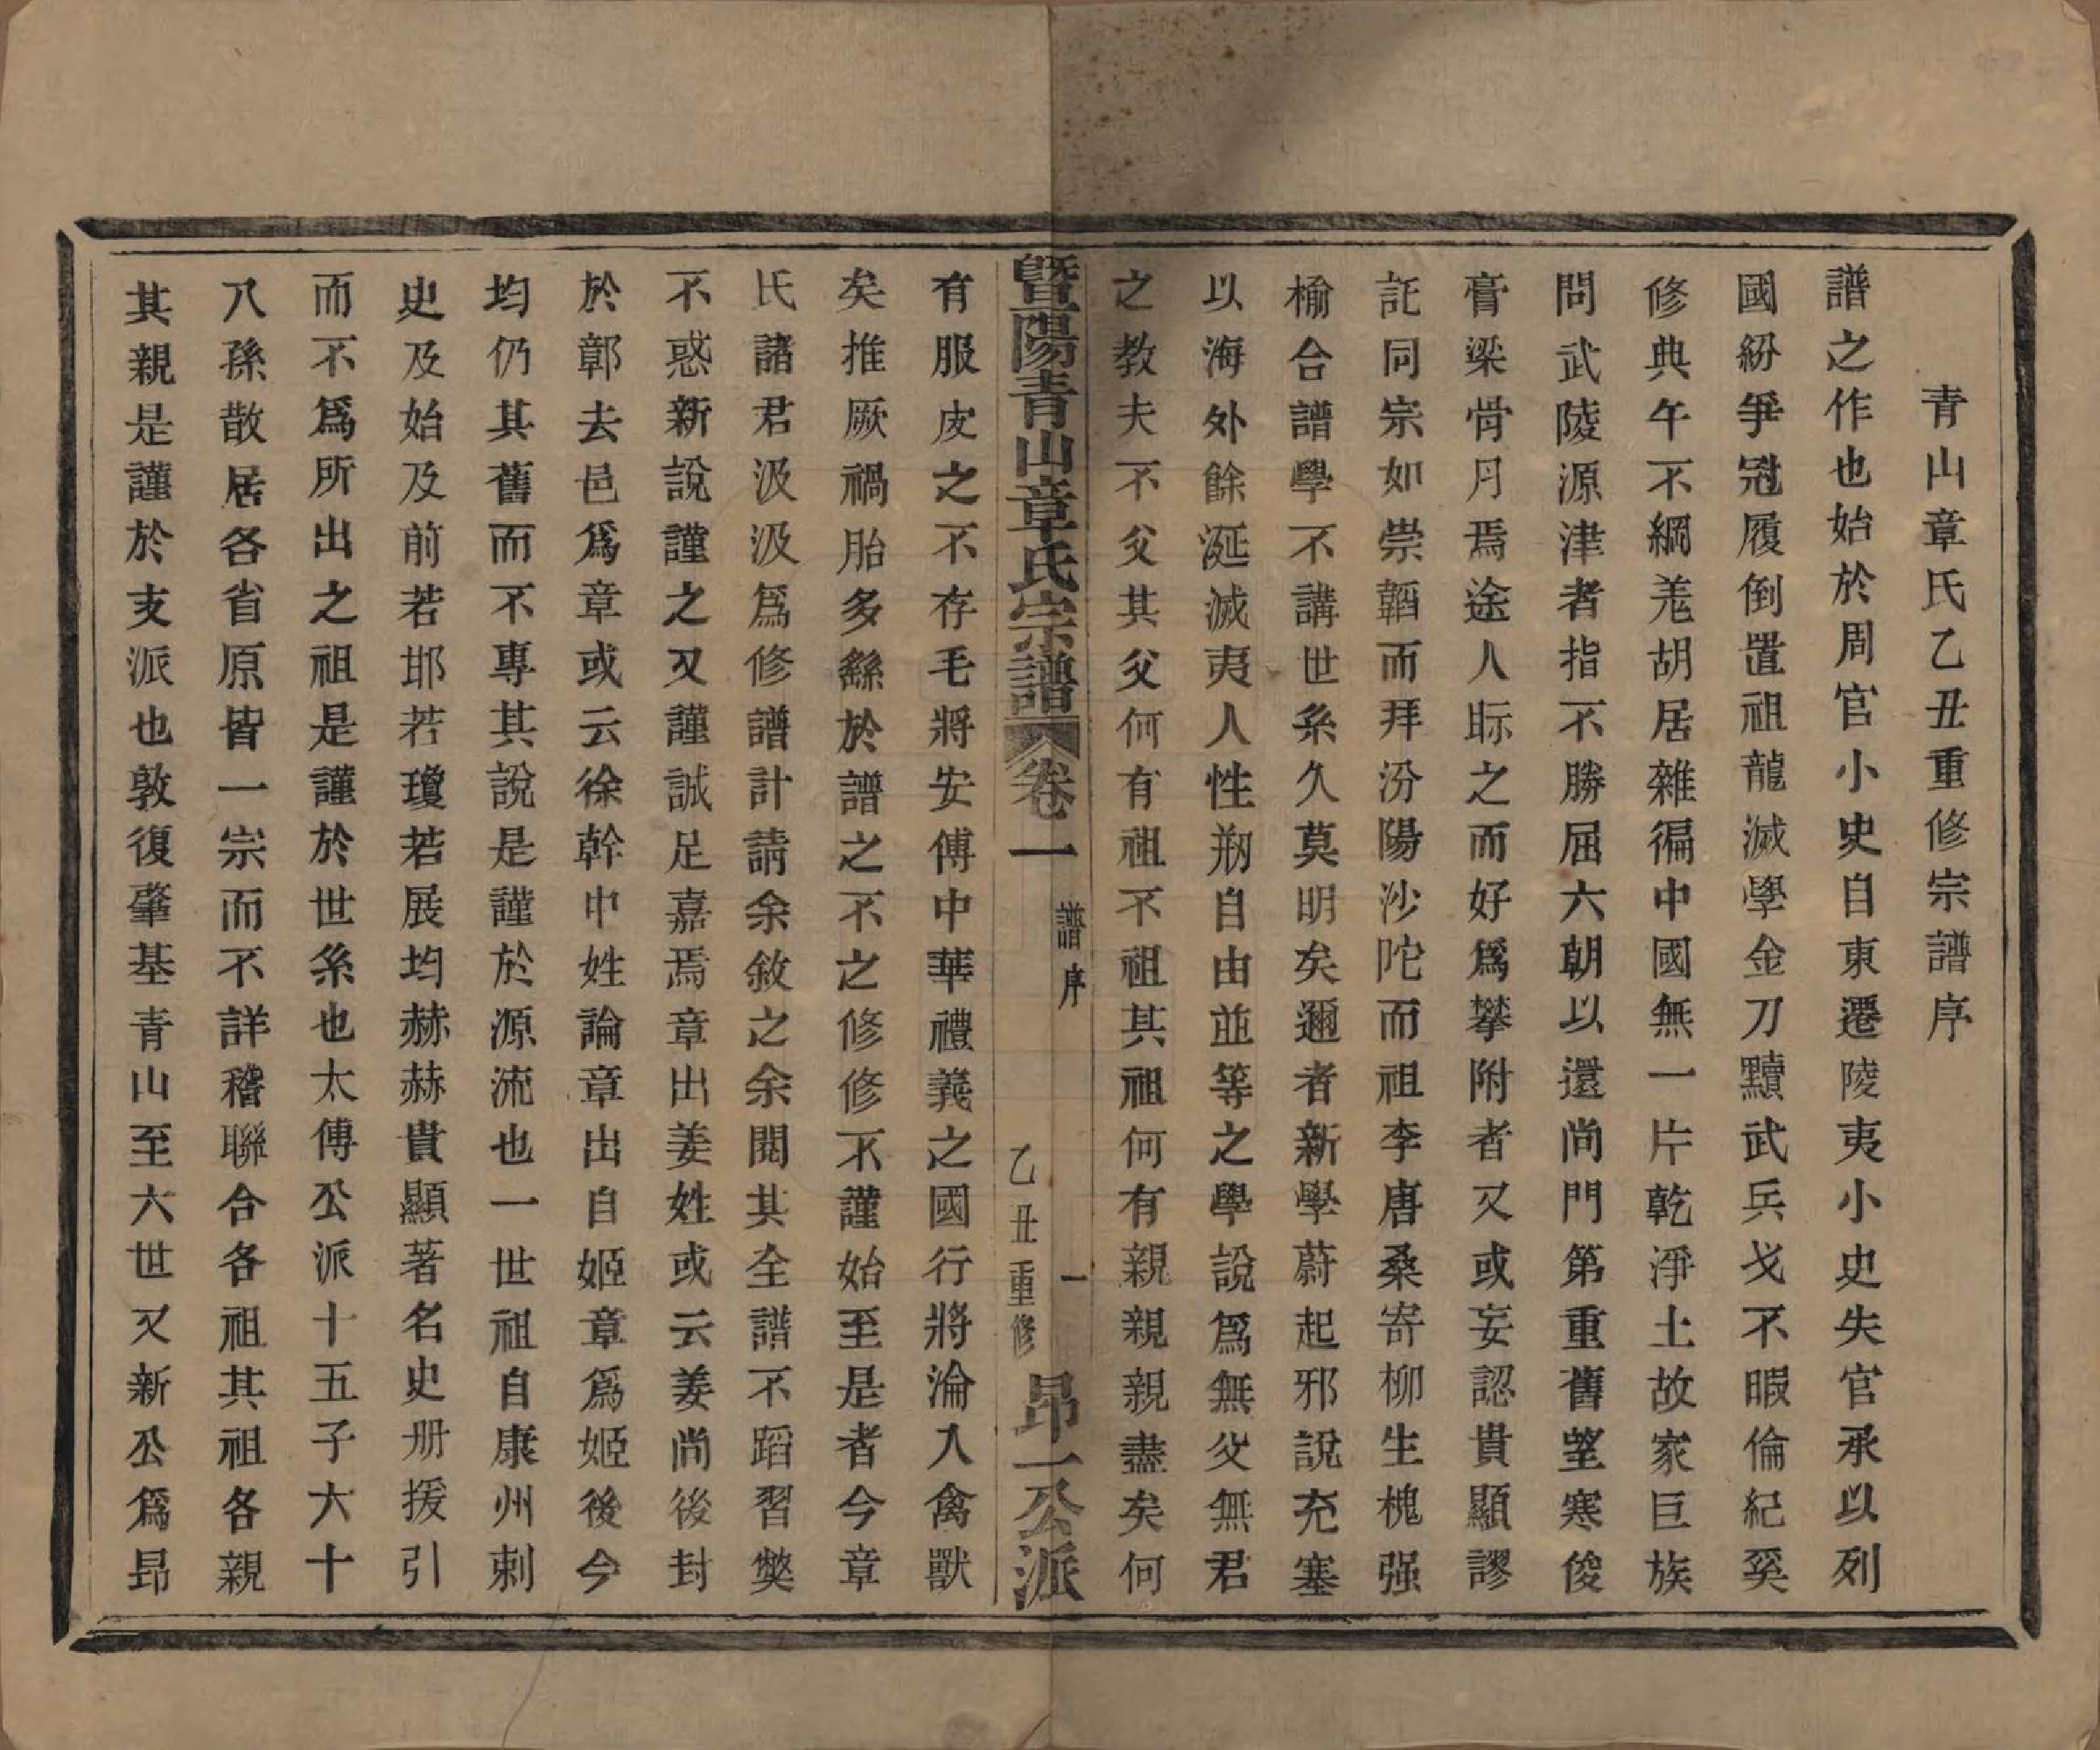 青山章氏乙丑重修宗譜序
譜之作也始於周官小史自東遷陵夷小史失官承以列
國紛爭冠履倒置祖龍滅學金刀黷武兵戈不暇倫紀奚
修典午不綱羌胡居雜徧中國無一片乾淨土故家巨族
問武陵源津者指不勝屈六朝以還尚門第重舊望寒俊
膏梁骨月焉途人眎之而好爲攀附者又或妄認貴顯謬
託同宗如崇韜而拜汾陽沙陀而祖李唐桑寄柳生槐强
榆合譜學不講世系久莫明矣邇者新學蔚起邪說充塞
以海外餘涎滅夷人性剙自由並等之學說爲無父無君
之教夫不父其父何有祖不祖其祖何有親親親盡矣何
暨陽青山章氏宗譜 卷一 譜序 一 乙丑重修 昂一公派
有服皮之不存毛將安傅中華禮義之國行將淪入禽獸
矣推厥禍胎多繇於譜之不之修修不謹始至是者今章
氏諸君汲汲爲修譜計請余敘之余閱其全譜不蹈習獘
不惑新說謹之又謹誠足嘉焉章出姜姓或云姜尚後封
於鄣去邑爲章或云徐幹中姓論章出自姬章爲姬後今
均仍其舊而不專其說是謹於源流也一世祖自康州刺
史及始及前若邯若瓊若展均赫赫貴顯著名史册援引
而不爲所出之祖是謹於世系也太傅公派十五子六十
八孫散居各省原皆一宗而不詳稽聯合各祖其祖各親
其親是謹於支派也敦復肇基青山至六世又新公爲昂